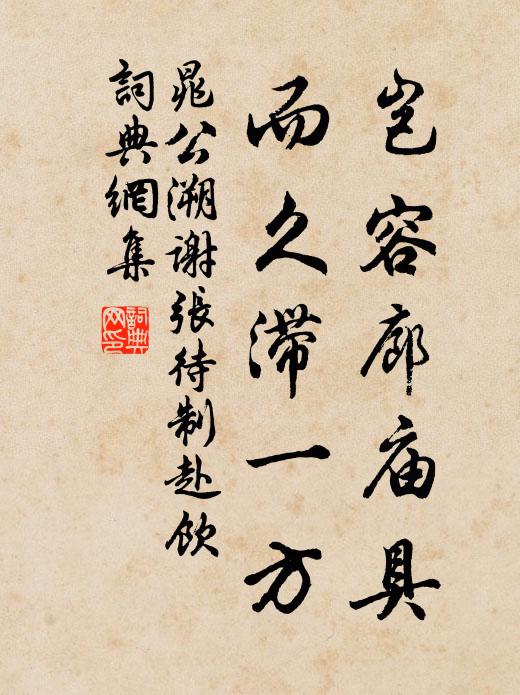 岂容廊庙具
而久滞一方
晁公溯谢張待制赴饮
詞典網集
詞典网印